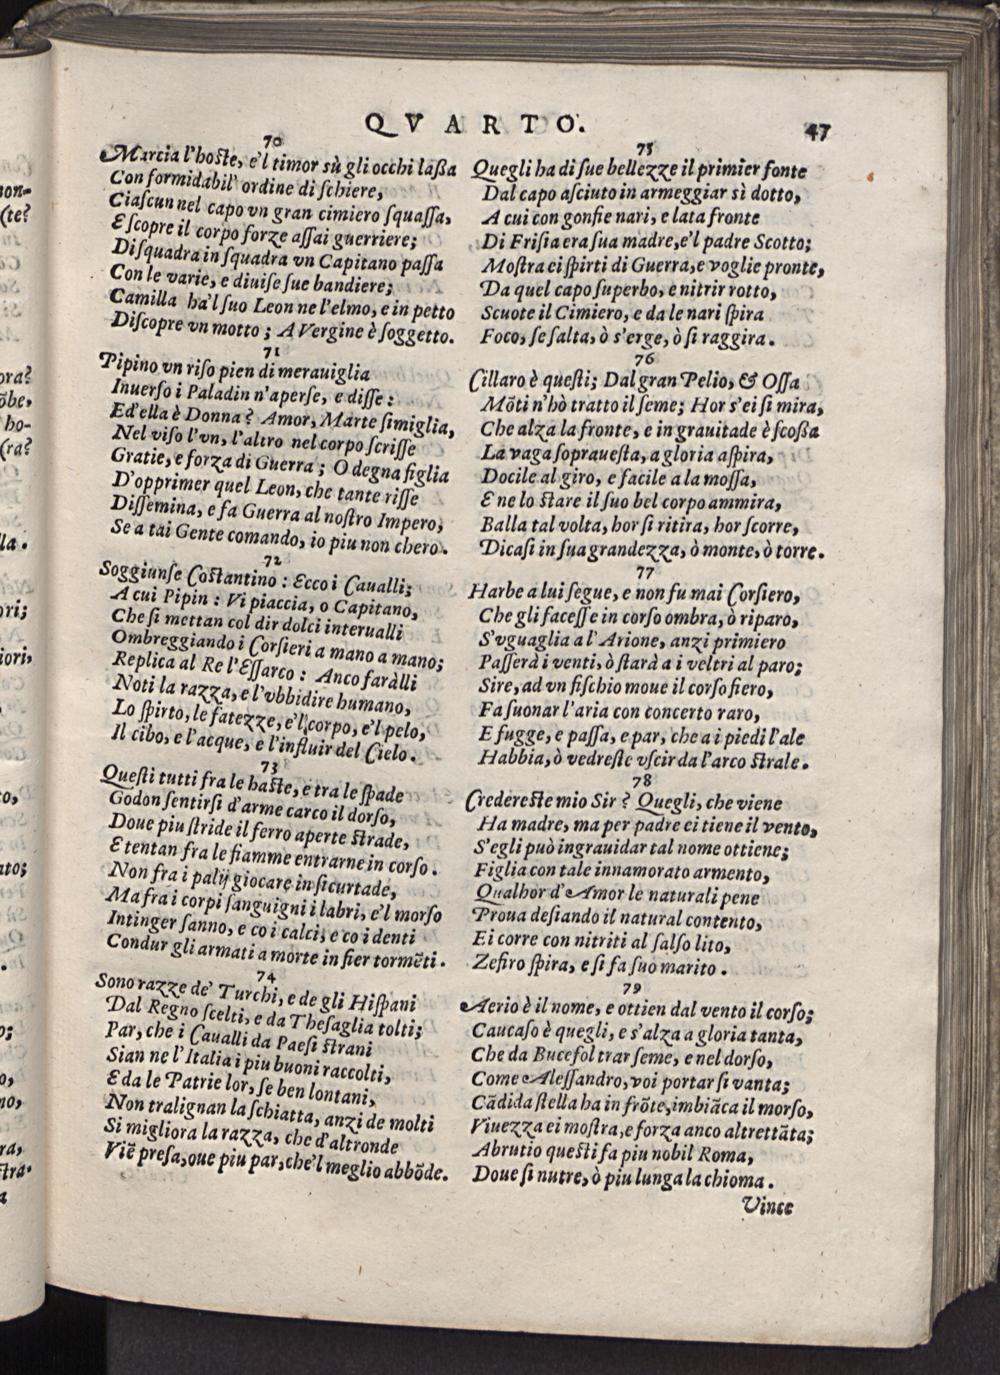 QVARTO.
47
70
Marcia l'hoste, e'l timor sù gli occhi laßa
Con formidabil' ordine di ſchiere,
Ciaſcun nel capo vn gran cimiero ſquaſſa,
E ſcopre il corpo forze aſſai guerriere;
Diſquadra in ſquadra vn Capitano paſſa
Con le varie, e diuiſe ſue bandiere;
Camilla ha'l ſuo Leon ne l'elmo, e in petto
Diſcopre vn motto; A Vergine è ſoggetto.
71
Pipino vn riſo pien di merauiglia
Inuerſo i Paladin n'aperſe, e diſſe:
Ed'ella è Donna? Amor, Marte ſimiglia,
Nel viſo l'vn, l'altro nel corpo ſcriſſe
Gratie, e forza di Guerra; O degna figlia
D'opprimer quel Leon, che tante riſſe
Diſſemina, e fa Guerra al noſtro Impero,
Se a tai Gente comando, io piu non chero.
72
Soggiunſe Coſtantino: Ecco i Caualli;
A cui Pipin: Vi piaccia, o Capitano,
Che ſi mettan col dir dolci interualli
Ombreggiando i Corſieri a mano a mano;
Replica al Re l'Eſſarco: Anco faràlli
Noti la razza, e l'vbbidire humano,
Lo ſpirto, le fatezze, e'l corpo, e'l pelo,
Il cibo, e l'acque, e l'influir del Cielo.
73
Queſti tutti fra le haſte, e tra le ſpade
Godon ſentirſi d'arme carco il dorſo,
Doue piu ſtride il ferro aperte ſtrade,
E tentan fra le fiamme entrarne in corſo.
Non fra i palij giocare in ſicurtade,
Ma fra i corpi ſanguigni i labri, e'l morſo
Intinger ſanno, e co i calci, e co i denti
Condur gli armati a morte in fier tormēti.
74
Sono razze de' Turchi, e de gli Hiſpani
Dal Regno ſcelti, e da Theſaglia tolti;
Par, che i Caualli da Paeſi ſtrani
Sian ne l'Italia i piu buoni raccolti,
E da le Patrie lor, ſe ben lontani,
Non tralignan la ſchiatta, anzi de molti
Si migliora la razza, che d'altronde
Viē preſa, oue piu par, che'l meglio abbōde.
75
Quegli ha di ſue bellezze il primier fonte
Dal capo aſciuto in armeggiar sì dotto,
A cui con gonfie nari, e lata fronte
Di Friſia era ſua madre, e'l padre Scotto;
Moſtra ei ſpirti di Guerra, e voglie pronte,
Da quel capo ſuperbo, e nitrir rotto,
Scuote il Cimiero, e da le nari ſpira
Foco, ſe ſalta, ò s'erge, ò ſi raggira.
76
Cillaro è queſti; Dal gran Pelio, & Oſſa
Mōti n'hò tratto il ſeme; Hor s'ei ſi mira,
Che alza la fronte, e in grauitade è ſcoßa
La vaga ſoprauesta, a gloria aſpira,
Docile al giro, e facile a la moſſa,
E ne lo ſtare il ſuo bel corpo ammira,
Balla tal volta, hor ſi ritira, hor ſcorre,
Dicaſi in ſua grandezza, ò monte, ò torre.
77
Harbe a lui ſegue, e non fu mai Corſiero,
Che gli faceſſe in corſo ombra, ò riparo,
S'vguaglia a l'Arione, anzi primiero
Paſſerà i venti, ò ſtarà a i veltri al paro;
Sire, ad vn fiſchio moue il corſo fiero,
Fa ſuonar l'aria con concerto raro,
E fugge, e paſſa, e par, che a i piedi l'ale
Habbia, ò vedreſte vſcir da l'arco ſtrale.
78
Credereſte mio Sir? Quegli, che viene
Ha madre, ma per padre ei tiene il vento,
S'egli può ingrauidar tal nome ottiene;
Figlia con tale innamorato armento,
Qualhor d'Amor le naturali pene
Proua deſiando il natural contento,
Ei corre con nitriti al ſalſo lito,
Zefiro ſpira, e ſi fa ſuo marito.
79
Aerio è il nome, e ottien dal vento il corſo;
Caucaſo è quegli, e s'alza a gloria tanta,
Che da Bucefol trar ſeme, e nel dorſo,
Come Aleſſandro, voi portar ſi vanta;
Cādida ſtella ha in frōte, imbiāca il morſo,
Viuezza ei moſtra, e forza anco altrettāta;
Abrutio queſti fa piu nobil Roma,
Doue ſi nutre, ò piu lunga la chioma.
Vince